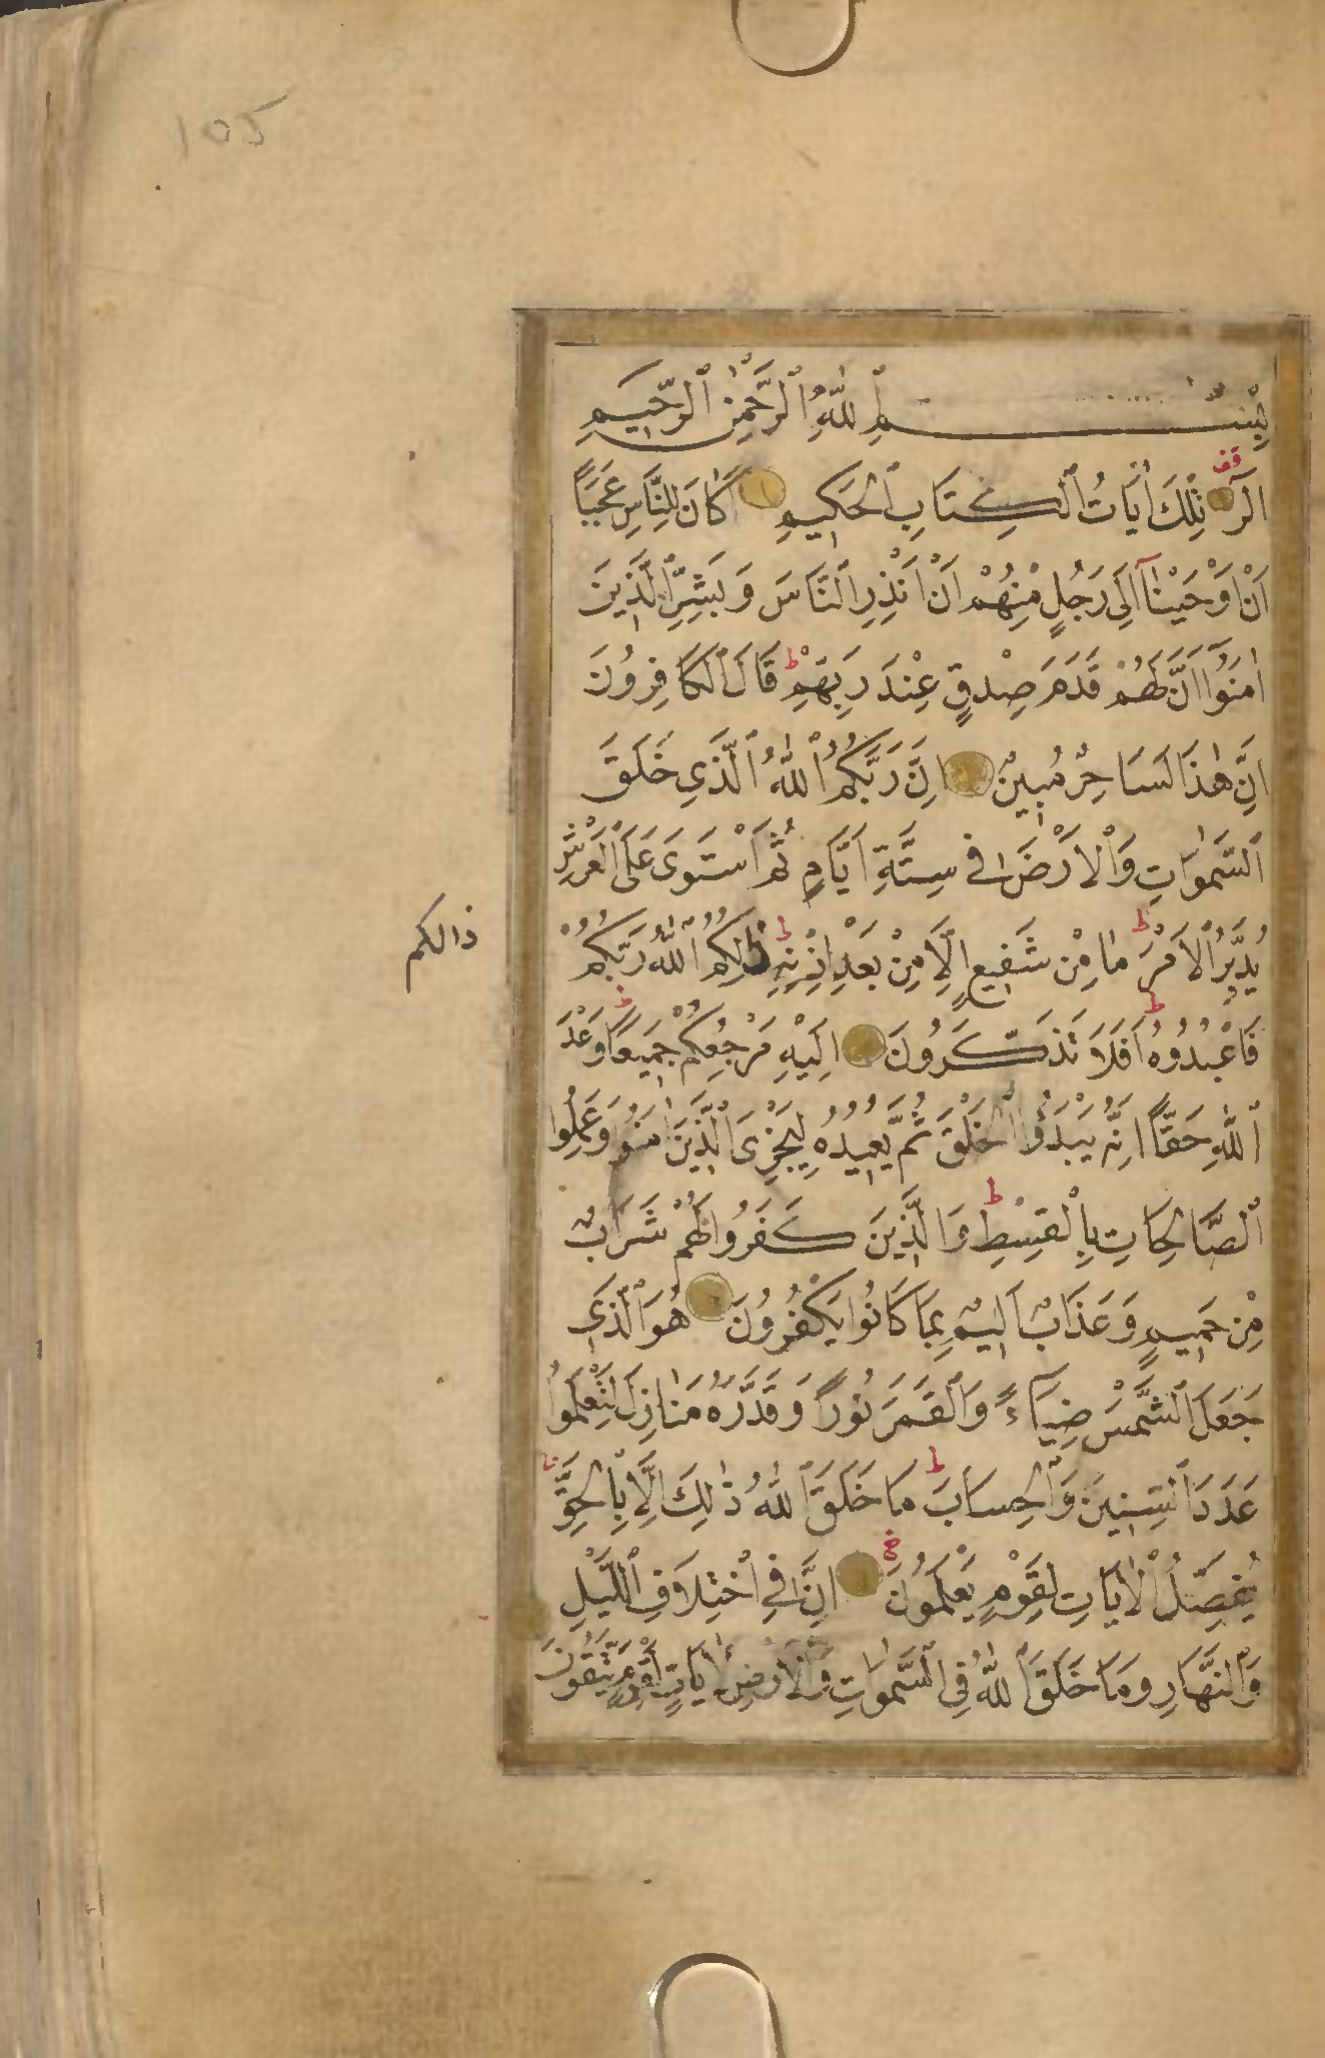 105
بِسْمِ اللّٰهِ الرَّحْمٰنِ الرَّحِيمِ
الٓرٰ تِلْكَ اٰيَاتُ الْكِتَابِ الْحَكِيمِ اَكَانَ لِلنَّاسِ عَجَبًا
اَنْ اَوْحَيْنَآ اِلَى رَجُلٍ مِنْهُمْ اَنْ اَنْذِرِ النَّاسَ وَبَشِّرِ الَّذِينَ
اٰمَنُوٓا اَنَّ لَهُمْ قَدَمَ صِدْقٍ عِنْدَ رَبِّهِمْ ط قَالَ الْكَافِرُونَ
اِنَّ هٰذَا لَسَاحِرٌ مُبِينٌ اِنَّ رَبَّكُمُ اللّٰهُ الَّذِي خَلَقَ
السَّمٰوَاتِ وَالْاَرْضَ فِي سِتَّةِ اَيَّامٍ ثُمَّ اسْتَوَى عَلَى الْعَرْشِ
يُدَبِّرُ الْاَمْرَ ط مَا مِنْ شَفِيعٍ اِلَّا مِنْ بَعْدِ اِذْنِهِ ط ذٰلِكُمُ اللّٰهُ رَبُّكُمْ
ذالكم
فَاعْبُدُوهُ ط اَفَلَا تَذَكَّرُونَ اِلَيْهِ مَرْجِعُكُمْ جَمِيعًا ط وَعْدَ
اللّٰهِ حَقًّا اِنَّهُ يَبْدَؤُا الْخَلْقَ ثُمَّ يُعِيدُهُ لِيَجْزِيَ الَّذِينَ اٰمَنُوا وَعَمِلُوا
الصَّالِحَاتِ بِالْقِسْطِ ط وَالَّذِينَ كَفَرُوا لَهُمْ شَرَابٌ
مِنْ حَمِيمٍ وَعَذَابٌ اَلِيمٌ بِمَا كَانُوا يَكْفُرُونَ هُوَ الَّذِي
جَعَلَ الشَّمْسَ ضِيَآءً وَالْقَمَرَ نُورًا وَقَدَّرَهُ مَنَازِلَ لِتَعْلَمُوا
عَدَدَ السِّنِينَ وَالْحِسَابَ ط مَا خَلَقَ اللّٰهُ ذٰلِكَ اِلَّا بِالْحَقِّ
يُفَصِّلُ الْاٰيَاتِ لِقَوْمٍ يَعْلَمُونَ اِنَّ فِي اخْتِلَافِ اللَّيْلِ
وَالنَّهَارِ وَمَا خَلَقَ اللّٰهُ فِي السَّمٰوَاتِ وَالْاَرْضِ لَاٰيَاتٍ لِقَوْمٍ يَتَّقُونَ